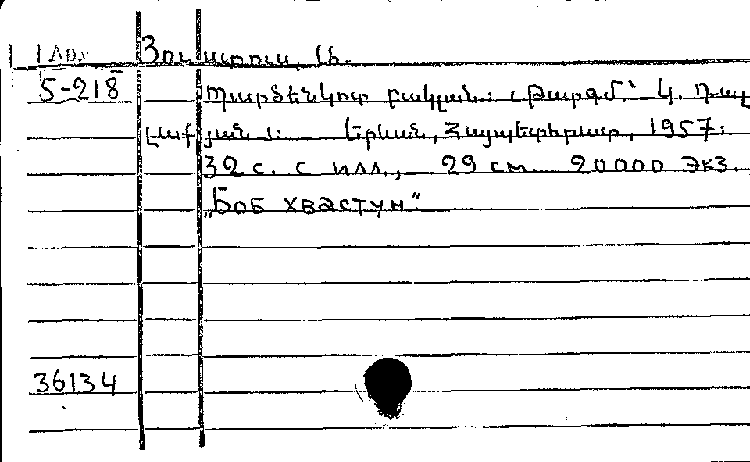 1 Арм Յուստուս, Ա.
5-218 Պարծենկոտ բակլան: Թարգմ.՝ Կ. Դալ
լաքյան: Երևան, Հայպետհրատ, 1957:
32 с. с илл., 29 см 20000 экз.
„Боб хвастун“
36134